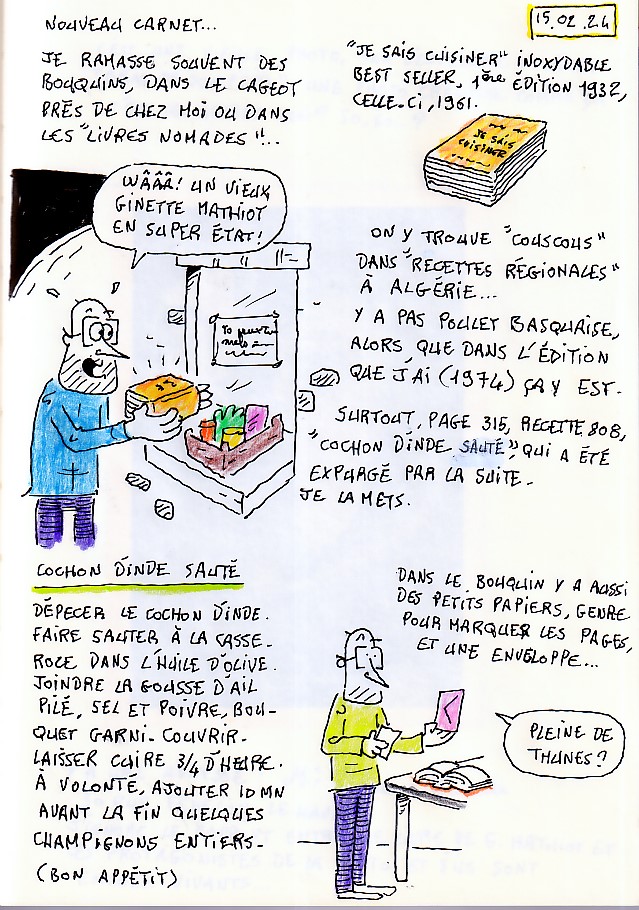 NOUVEAU CARNET...
15.02.24
JE RAMASSE SOUVENT DES
BOUQUINS, DANS LE CAGEOT
PRÈS DE CHEZ MOI OU DANS
LES "LIVRES NOMADES"...
"JE SAIS CUISINER" INOXYDABLE
BEST SELLER. 1ère ÉDITION 1932,
CELLE-CI, 1961.
JE SAIS
CUISINER
WÂÂÂ! UN VIEUX
GINETTE MATHIOT
EN SUPER ÉTAT!
ON Y TROUVE "COUSCOUS"
DANS "RECETTES RÉGIONALES"
À ALGÉRIE...
Y A PAS POULET BASQUAISE,
ALORS QUE DANS L'ÉDITION
QUE J'AI (1974) ÇA Y EST.
SURTOUT, PAGE 315, RECETTE 808,
"COCHON D'INDE SAUTÉ", QUI A ÉTÉ
EXPURGÉ PAR LA SUITE.
JE LA METS.
COCHON D'INDE SAUTÉ
DÉPECER LE COCHON D'INDE.
FAIRE SAUTER À LA CASSE-
ROLE DANS L'HUILE D'OLIVE.
JOINDRE LA GOUSSE D'AIL
PILÉ, SEL ET POIVRE, BOU-
QUET GARNI. COUVRIR.
LAISSER CUIRE 3/4 D'HEURE.
À VOLONTÉ, AJOUTER 10 MN
AVANT LA FIN QUELQUES
CHAMPIGNONS ENTIERS.
(BON APPÉTIT)
DANS LE BOUQUIN Y A AUSSI
DES PETITS PAPIERS, GENRE
POUR MARQUER LES PAGES,
ET UNE ENVELOPPE...
PLEINE DE
THUNES?